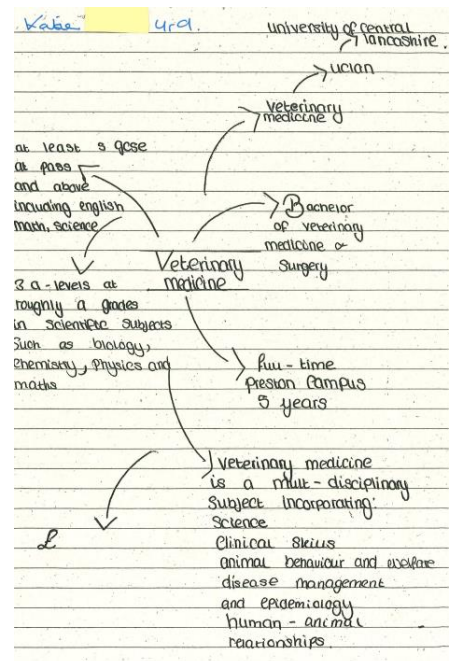 university of central
lancashire.
uclan
veterinary
medicine
at least 5 gcse
at pass
and above
including english
math, science
Bachelor
of veterinary
medicine &
Surgery
Veterinary
medicine
3 a-levels at
roughly a grades
in scientific subjects
Such as biology,
chemistry, physics and
maths
full-time
Preston Campus
5 years
veterinary medicine
is a mult-disciplinary
Subject incorporating:
Science
Clinical Skills
animal behaviour and welfare
disease management
and epidemiology
human-animal
relationships.
£